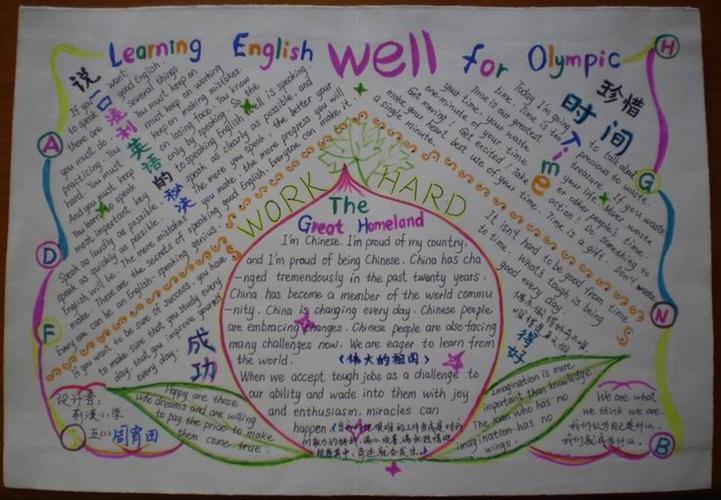 Learning English well for Olympic
说一口流利英语的秘决
If you want
to speak good English,
there are several things
you must do. You must keep on
practicing. You must keep on working
hard. You must keep on making mistakes
And you must keep on losing face. You know
You learn to speak only by speaking. So the
most important key to speaking English well is speaking.
Speak as loudly as possible, as clearly as possible, and
speak as quickly as possible. The more you speak, the better your
English will be. The more mistakes you make, the more progress you will
make. These are the secrets of speaking good English. Everyone can make it.
Every one can be an English speaking genius.
If you want to be sure of success, you have
to make sure that you study every
day, that you improve yourself
every day.
成功
珍惜时间
Time
Today I'm going to talk about
time. Time is precious to us.
Time is our greatest treasure. If you waste
your time, you waste your life. Never waste
one minute of your time or other people's time.
Get moving! Get excited! Take action! Do something to
make your heart beat use of your time. Time is a gift. Don't waste
a single minute.
It isn't hard to be good from time
to time. What's tough is being
good every day.
得好
WORK HARD
The
Great Homeland
I'm Chinese. I'm proud of my country,
and I'm proud of being Chinese. China has cha
-nged tremendously in the past twenty years.
China has become a member of the world commu
-nity. China is changing every day. Chinese people
are embracing changes. Chinese people are also facing
many challenges now. We are eager to learn from
the world. 《伟大的祖国》
When we accept tough jobs as a challenge to
our ability and wade into them with joy
and enthusiasm, miracles can
happen.
Happy are those
who dreams and are willing
to pay the price to make
them come true.
Imagination is more
important than knowledge
The man who has no
imagination has no
wings.
We are what
we think we are
我们认为自己是什么,
我们就成为什么.
设计者:
小学
五(二)周宵田
A
D
F
H
G
N
B